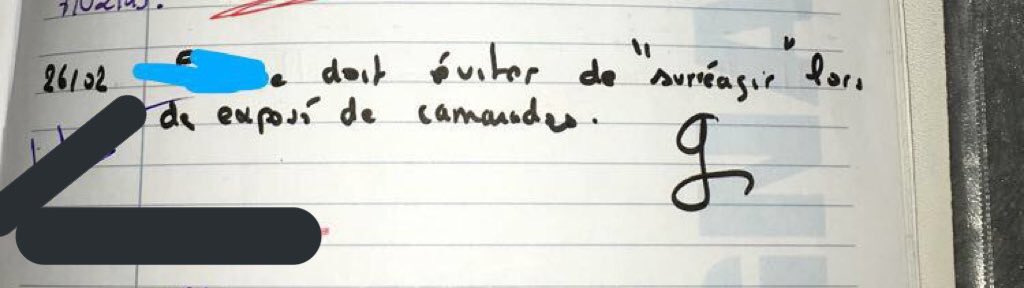 26/02 e doit éviter de "surréagir" lors
de exposé de camarades.